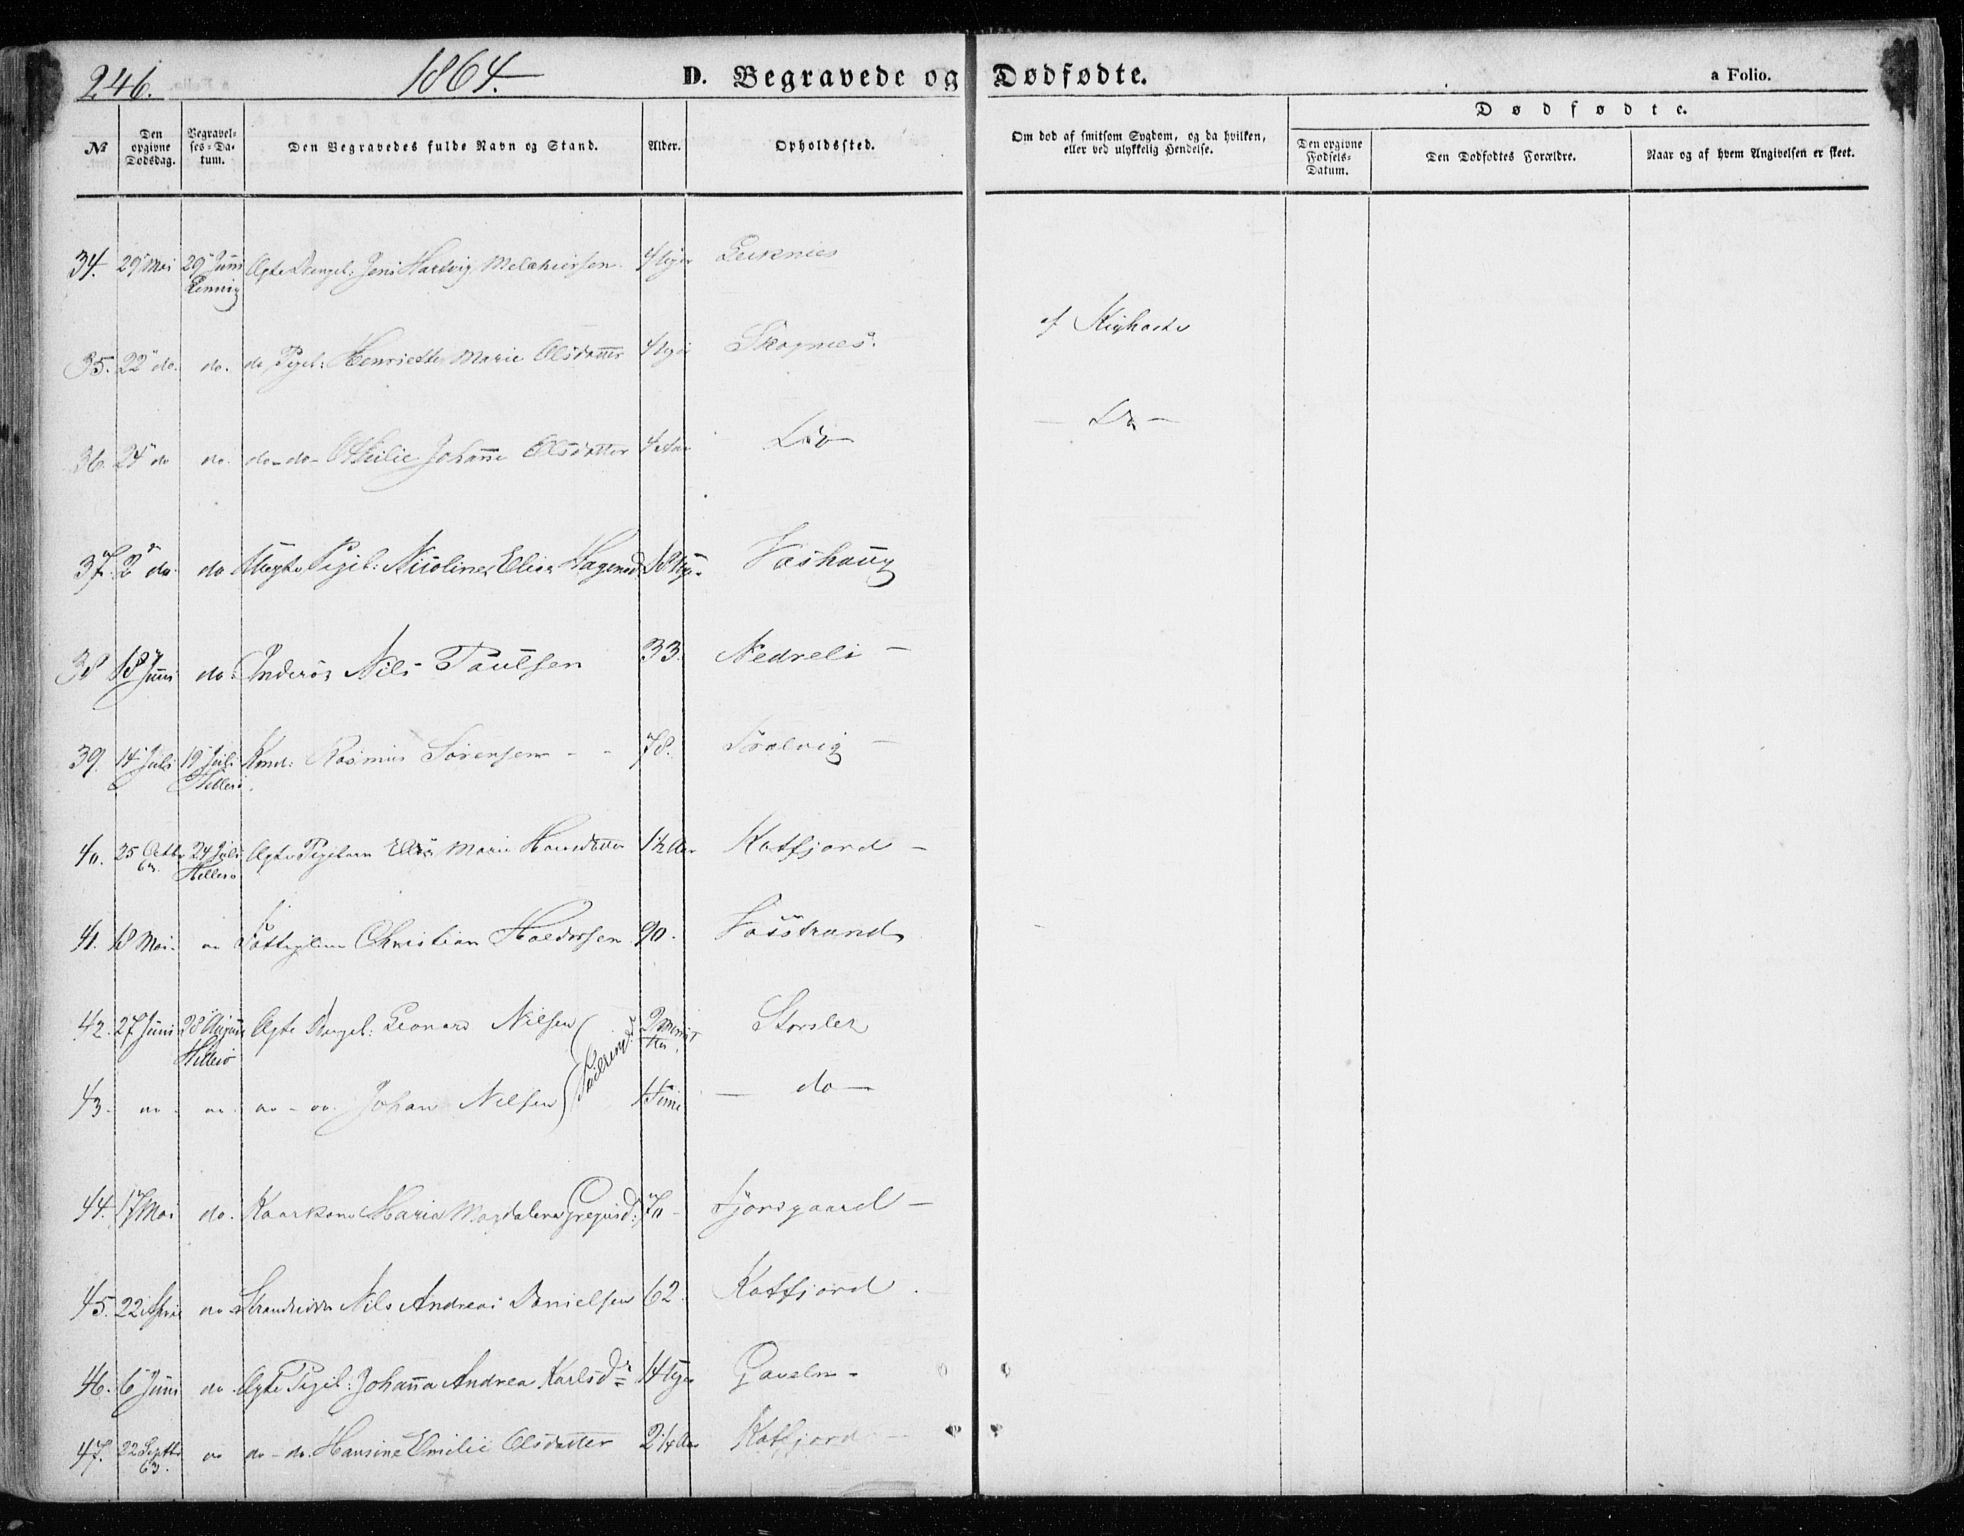 246.
1864.
D. Begravede og Dødfødte.
a Folio.
№
Den opgivne Dødsdag.
Begravelses-Datum.
Den Begravedes fulde Navn og Stand.
Alder.
Opholdssted.
Om død af smitsom Sygdom, og da hvilken, eller ved ulykkelig Hendelse.
Dødfødte.
Den opgivne Fødsels-Datum.
Den Dødfødtes Forældre.
Naar og af hvem Angivelsen er skeet.
34. 29 Mai 29 Juni Ægte Drengeb: Jens Hartvig Melchiorsen 4 Uger
35. 22 do. do. do Pigeb: Henriette Marie Olsdatter 4 Uger Skognes. af Kighoste
36. 24 do do. do - do - Othilie Johanne Olsdatter 4 Aar Do - Do -
37. 2 do do Uægte Pigeb: Nicoline Elisa Hagensd. 18 Ug. Vashaug
38 18 Juni do Inderst Nils Paulsen 33. Nedreli -
39. 14 Juli 19 Juli Hillesø Kmd: Rasmus Sørensen - - 78.
40. 25 Octbr 63. 24 Juli Hillesø Ægte Pigebarn Marie Hansdatter 1½ Aar Katfjord -
41. 18 Mai - do Christian 90. Vasstrand
42. 27 Juni 28 August Hillesø Ægte Drengeb: Leonard Nilsen 2 Storslet
43. do - do. do - do. Johan Nilsen 1 Time - do -
44. 17 Mai do. Kaarkone Maria Magdalena Gregusd: 70 -
45. 22 April do Nils Andreas Danielsen 62. Katfjord.
46. 6 Juni do Ægte Pigeb: Johanna Andrea Karlsdr 14 Uger
47. 22 Septbr 63. do do - do. Hansine Emilie Olsdatter 2¼ Aar Katfjord -